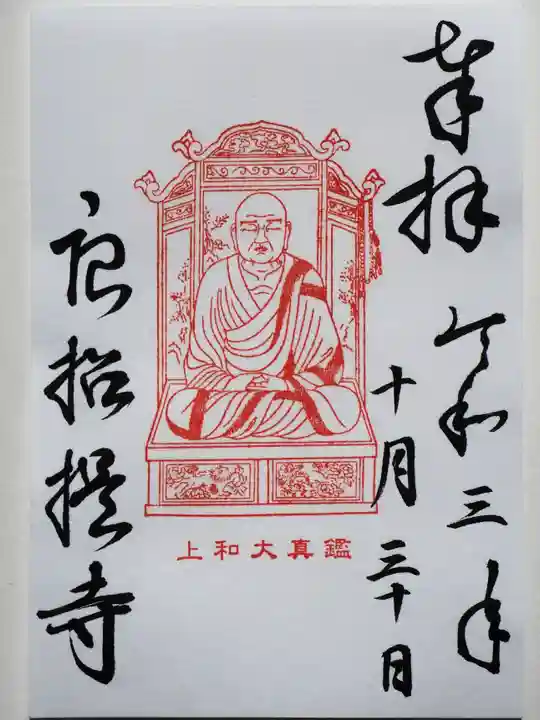 奉拝
令和三年
十月三十日
上和大真鑑
唐招提寺